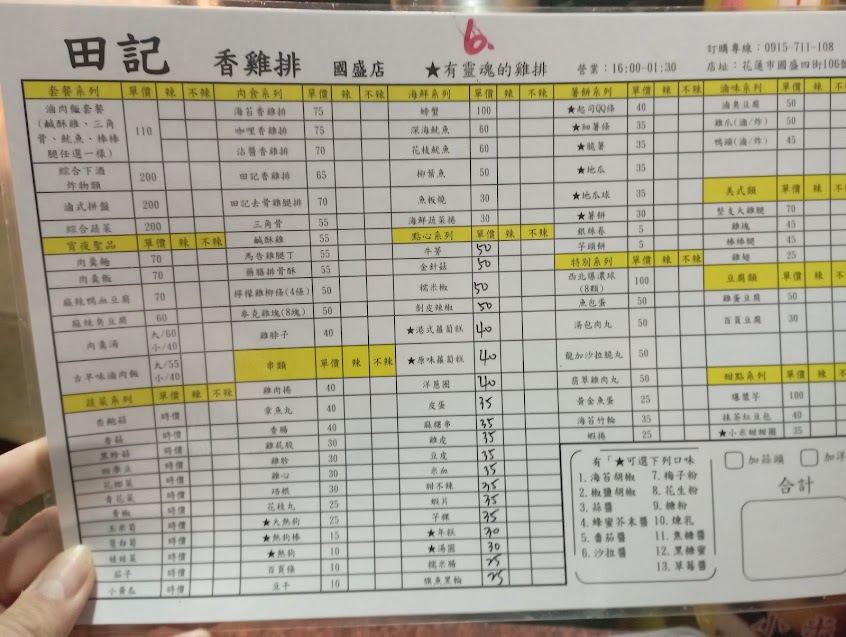 6.
田記 香雞排 國盛店 ★有靈魂的雞排 營業：16:00-01:30
訂購專線：0915-711-108
店址：花蓮市國盛四街106號
套餐系列 單價 辣 不辣
滷肉飯套餐
(鹹酥雞、三角
骨、魷魚、棒棒
腿任選一樣) 110
綜合下酒
炸物類 200
滷式拼盤 200
綜合蔬菜 200
宵夜聖品 單價 辣 不辣
肉羹麵 70
肉羹飯 70
麻辣鴨血豆腐 70
麻辣臭豆腐 60
肉羹湯 大/60
小/40
古早味滷肉飯 大/55
小/40
蔬菜系列 單價 辣 不辣
杏鮑菇 時價
香菇 時價
黑珍菇 時價
四季豆 時價
花椰菜 時價
青花菜 時價
青椒 時價
玉米筍 時價
茭白筍 時價
娃娃菜 時價
茄子 時價
小黃瓜 時價
肉食系列 單價 辣 不辣
海苔香雞排 75
咖哩香雞排 75
沾醬香雞排 70
田記香雞排 65
田記去骨雞腿排 70
三角骨 55
鹹酥雞 55
馬告雞腿丁 55
藥膳排骨酥 55
檸檬雞柳條(4條) 50
麥克雞塊(8塊) 50
雞脖子 40
串類 單價 辣 不辣
雞肉捲 40
章魚丸 40
香腸 40
雞屁股 30
雞胗 30
雞心 30
培根 30
花枝丸 25
★大熱狗 25
★熱狗棒 15
★熱狗 10
百頁條 10
豆干 10
海鮮系列 單價 辣 不辣
螃蟹 100
深海魷魚 60
花枝魷魚 60
柳葉魚 50
魚板燒 30
海鮮蔬菜捲 30
點心系列 單價 辣 不辣
牛蒡 50
金針菇 50
糯米椒 50
剝皮辣椒 50
★港式蘿蔔糕 40
★原味蘿蔔糕 40
洋蔥圈 40
皮蛋 35
麻糬串 35
雞皮 35
豆皮 35
米血 35
甜不辣 35
蝦片 35
芋粿 35
★年糕 30
★湯圓 30
糯米腸 25
旗魚黑輪 25
薯餅系列 單價 辣 不辣
★起司QQ條 40
★細薯條 35
★脆薯 35
★地瓜 35
★地瓜球 35
★薯餅 30
銀絲卷 5
芋頭餅 5
特別系列 單價 辣 不辣
西北爆漿球
(8顆) 100
魚包蛋 50
湯包肉丸 50
龍加沙拉脆丸 50
翡翠雞肉丸 50
黃金魚蛋 25
海苔竹輪 35
蝦捲 25
滷味系列 單價 辣 不
滷臭豆腐 50
雞爪(滷/炸) 50
鴨頭(滷/炸) 45
美式類 單價 辣 不
整支大雞腿 70
雞塊 45
棒棒腿 45
雞翅 25
豆腐類 單價 辣 不
雞蛋豆腐 50
百頁豆腐 30
甜點系列 單價 辣 不
爆漿芋 100
抹茶紅豆包 40
★小米甜甜圈 35
有「★可選下列口味
1.海苔胡椒 7.梅子粉
2.椒鹽胡椒 8.花生粉
3.蒜醬 9.糖粉
4.蜂蜜芥末醬 10.煉乳
5.番茄醬 11.焦糖醬
6.沙拉醬 12.黑糖蜜
13.草莓醬
加蒜頭 加洋
合計